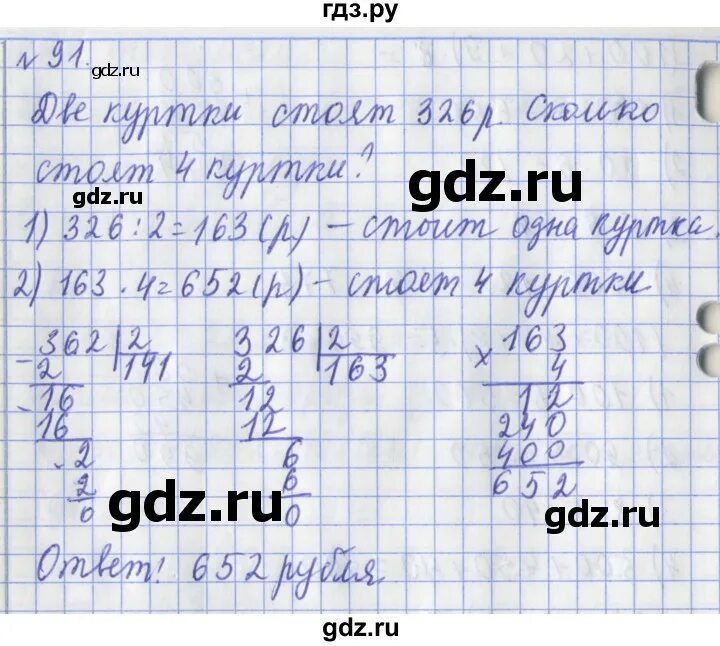 гдз.ру
№ 91.
gdz.ru
Две куртки стоят 326 р. Сколько
стоят 4 куртки?
gdz.ru
gdz.ru
1) 326 : 2 = 163 (р) – стоит одна куртка.
2) 163 · 4 = 652 (р) – стоят 4 куртки
362 | 2
- 2 | 191
- 16
16
- 2
2
0
326 | 2
2 | 163
12
12
6
6
0
× 163
4
12
240
400
652
gdz.ru
gdz.ru
Ответ: 652 рубля
gdz.ru